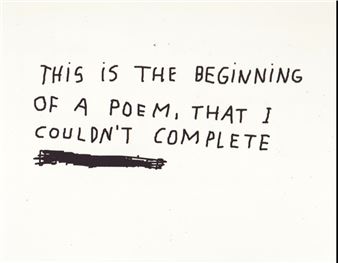 THIS IS THE BEGINNING
OF A POEM, THAT I
COULDN'T COMPLETE